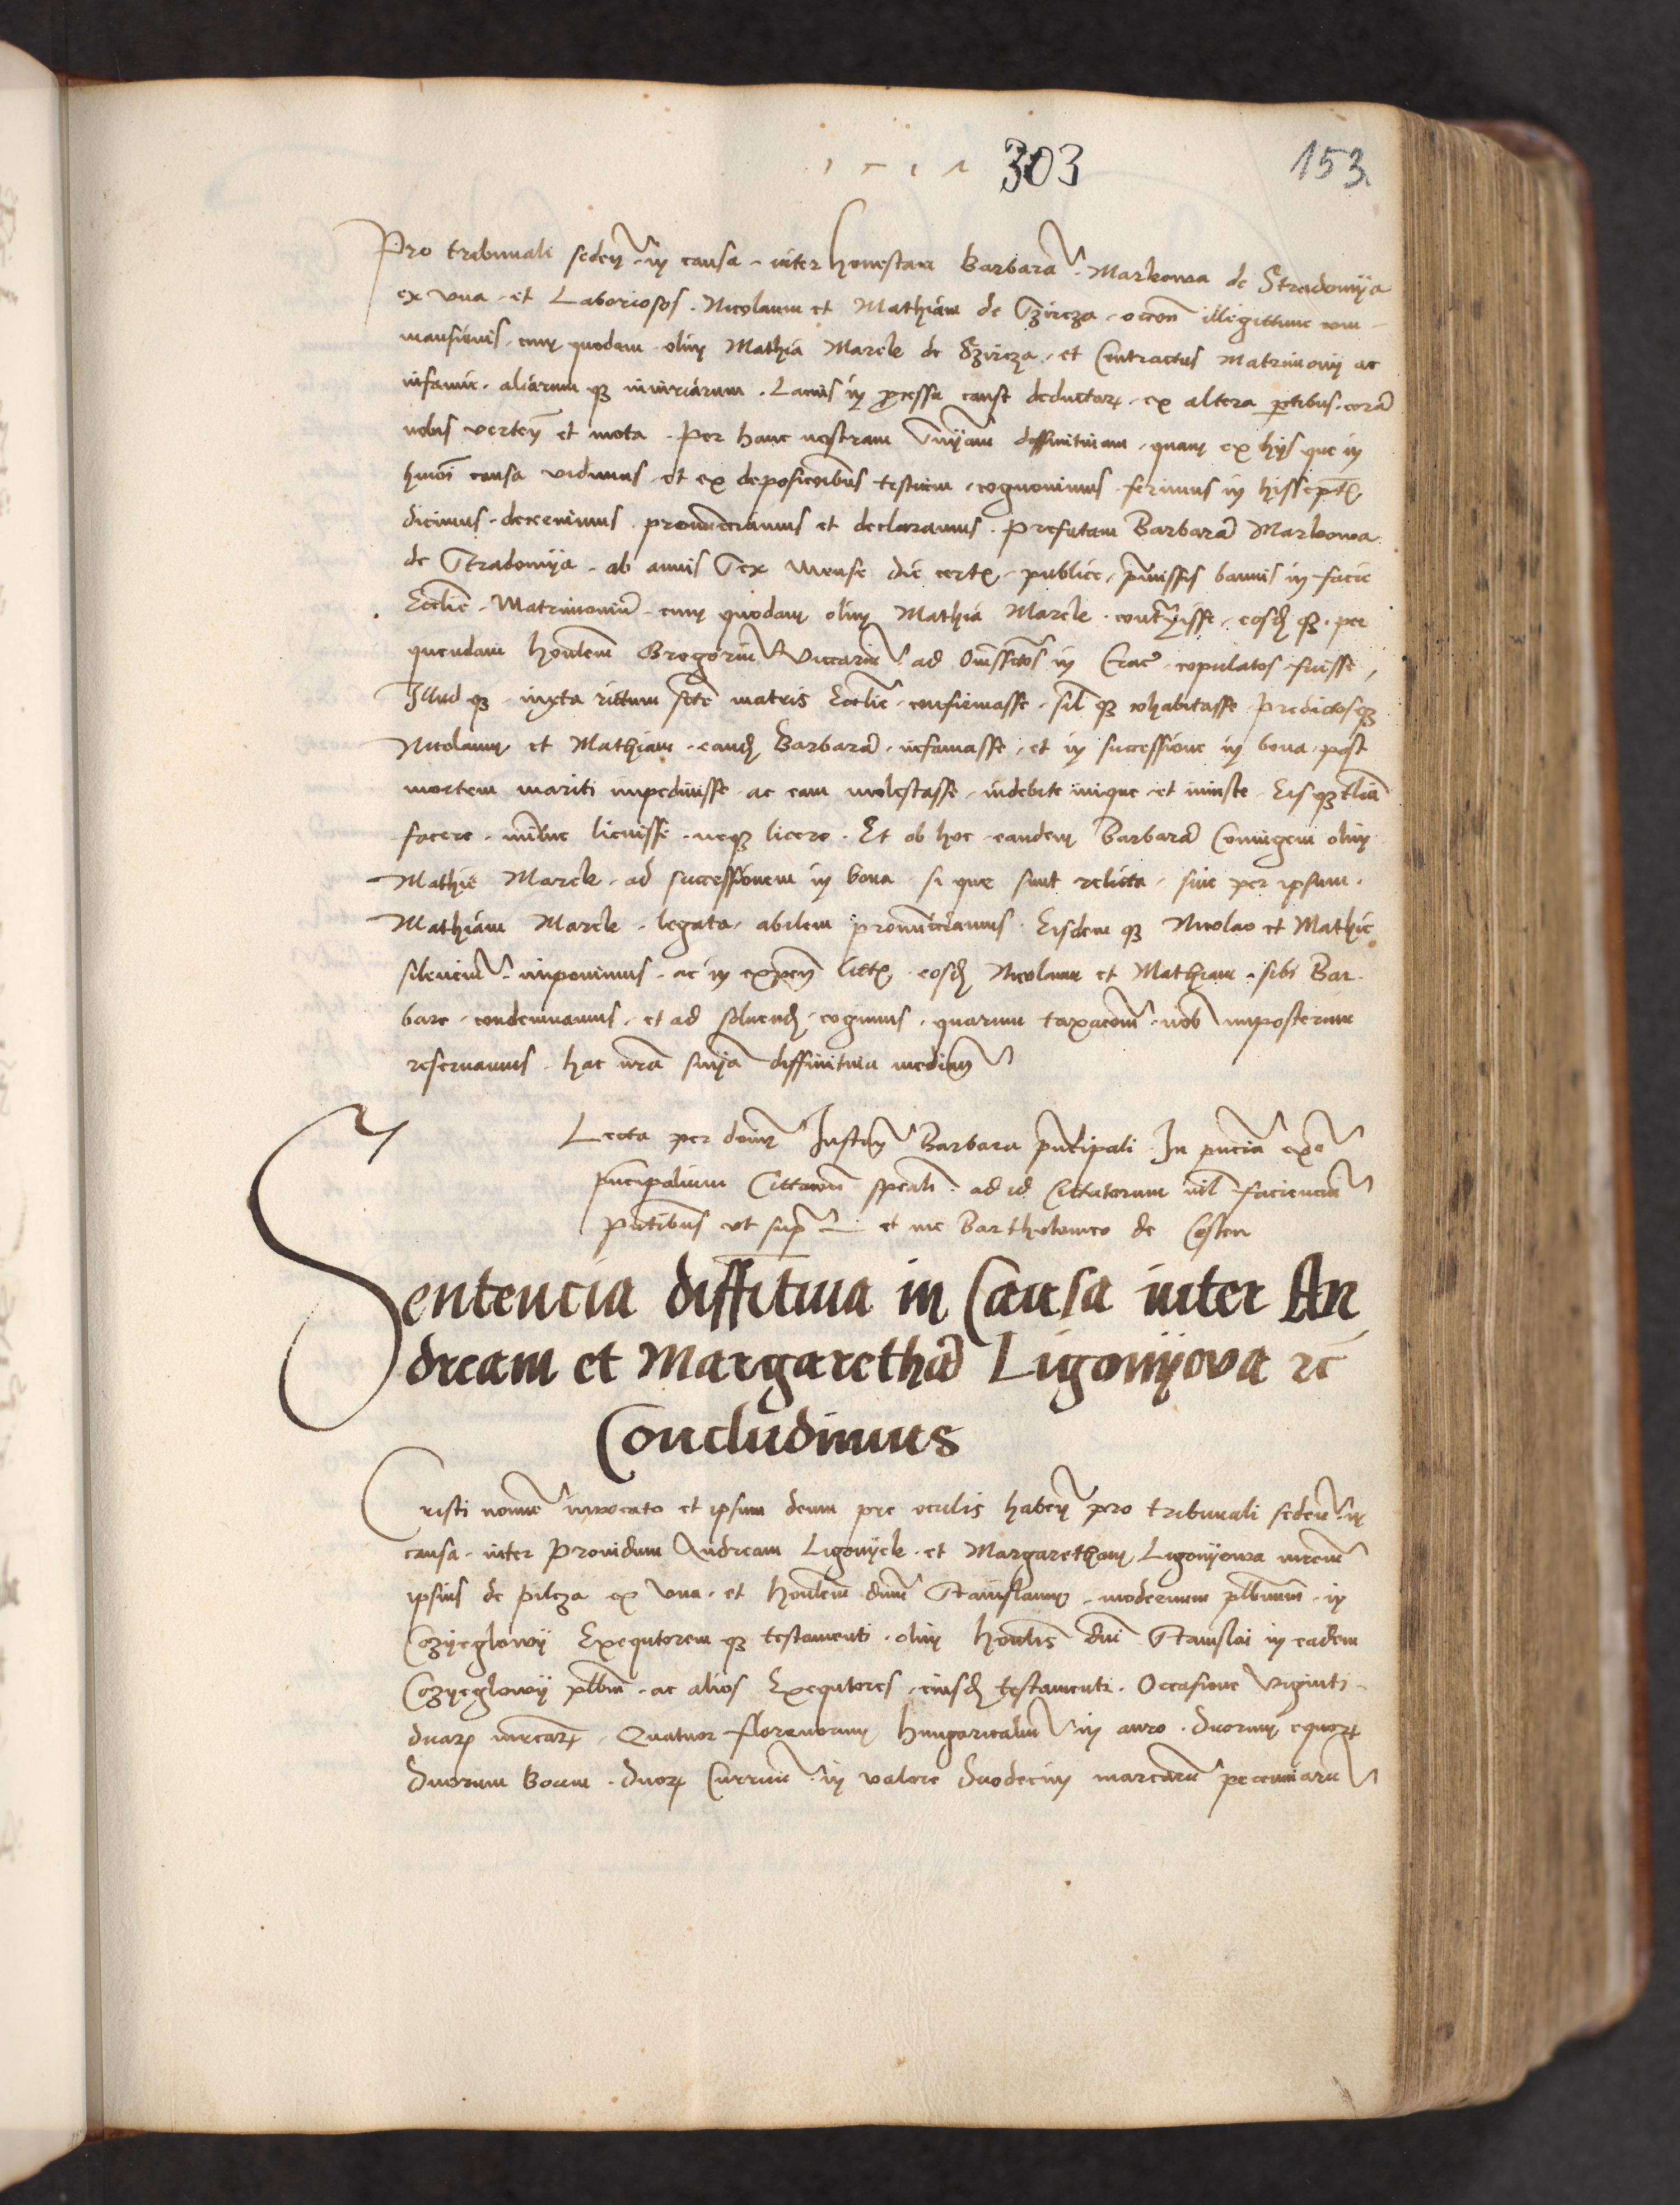 1 5 1 1 303 153
Pro tribunali seden̄ in causa inter honestam Barbarā Markowa de Stradomÿa
ex vna et Laboriosos Nicolaum et Mathiam de occōn illegittime com
mansionis cum quodam olim Mathia Marek de et Contractus Matrimonij ac
infamie aliarum qʒ iniuriarum Lacius in ꝓcessu cause deductarꝝ ex altera ꝑtibus corā
nobis verten̄ et mota Per hanc nostram Sn̄iam diffinitiuam quam ex hijs que in
hmōi causa vidimus et ex deposicōibus testium cognouimus ferimus in hijs scpt̄
dicimus decernimus pronūcciamus et declaramus Prefatam Barbarā Markowa
de Stradomÿa ab annis Sex Mense die cert publice p̄missis bannis in facie
Ecclie Matrimoniū cum quodam olim Mathia Marek contxisse eosdꝫ qʒ per
quendam honlem Gregoriū Vicariū ad Om̄sctos in Crac̄ copulatos fuisse
Illud qʒ iuxta rittum scte matris Ecclie confirmasse sil qʒ cohabitasse predictosqʒ
Nicolaum et Mathiam eandꝫ Barbarā infamasse et in successione in bona post
mortem mariti impediuisse ac eam molestasse indebite inique et iniuste Eis qʒ tlia
facere minime licuisse neqʒ licere Et ob hoc eandem Barbarā Coniugem olim
Mathie Marek ad successionem in bona si que sunt relicta siue per ipsum
Mathiam Marek legata abilem pronūcciamus Eisdem qʒ Nicolao et Mathie
silenciū imponimus ac in expen̄ litt eosdꝫ Nicolaum et Mathiam sibi Bar
bare condemnamus et ad soluendꝫ cogimus quarum taxacōem nob imposterum
reseruamus hac nr̄a sn̄ia diffinitiua median̄
Lecta per dominū Instan̄ Barbara prīcipali In pn̄cia
prīncipalium Cittatorū spcalr̄ ad id Cittatorum nil facienciū
pn̄tibus vt supra et me Bartholomeo de Costen
Sentencia diffītiua in Causa inter An
dream et Margarethā Ligonÿova ꝛc̄
Concludimus
Cristi nomīe inuocato et ipsum deum pre oculis haben̄ pro tribunali seden̄ in
causa inter Prouidum Andream Ligonÿek et Margaretham Ligonÿowa vxorem
ipsius de Pilcza ex Vna et honlem dnm̄ Stanislaum modernum plbnum in
Cozÿeglowÿ Exequtorem qʒ testamenti olim honlis dni Stanislai in eadem
Cozÿeglowÿ plbni ac alios Exequtores eiusdꝫ testamenti Occasione Viginti
duarꝝ marcarꝝ Quatuor florenorum hungaricaliū in auro Duorum equorꝝ
Duorum Boum Duorꝝ Curruū in valore Duodecim marcarū pecuniarū